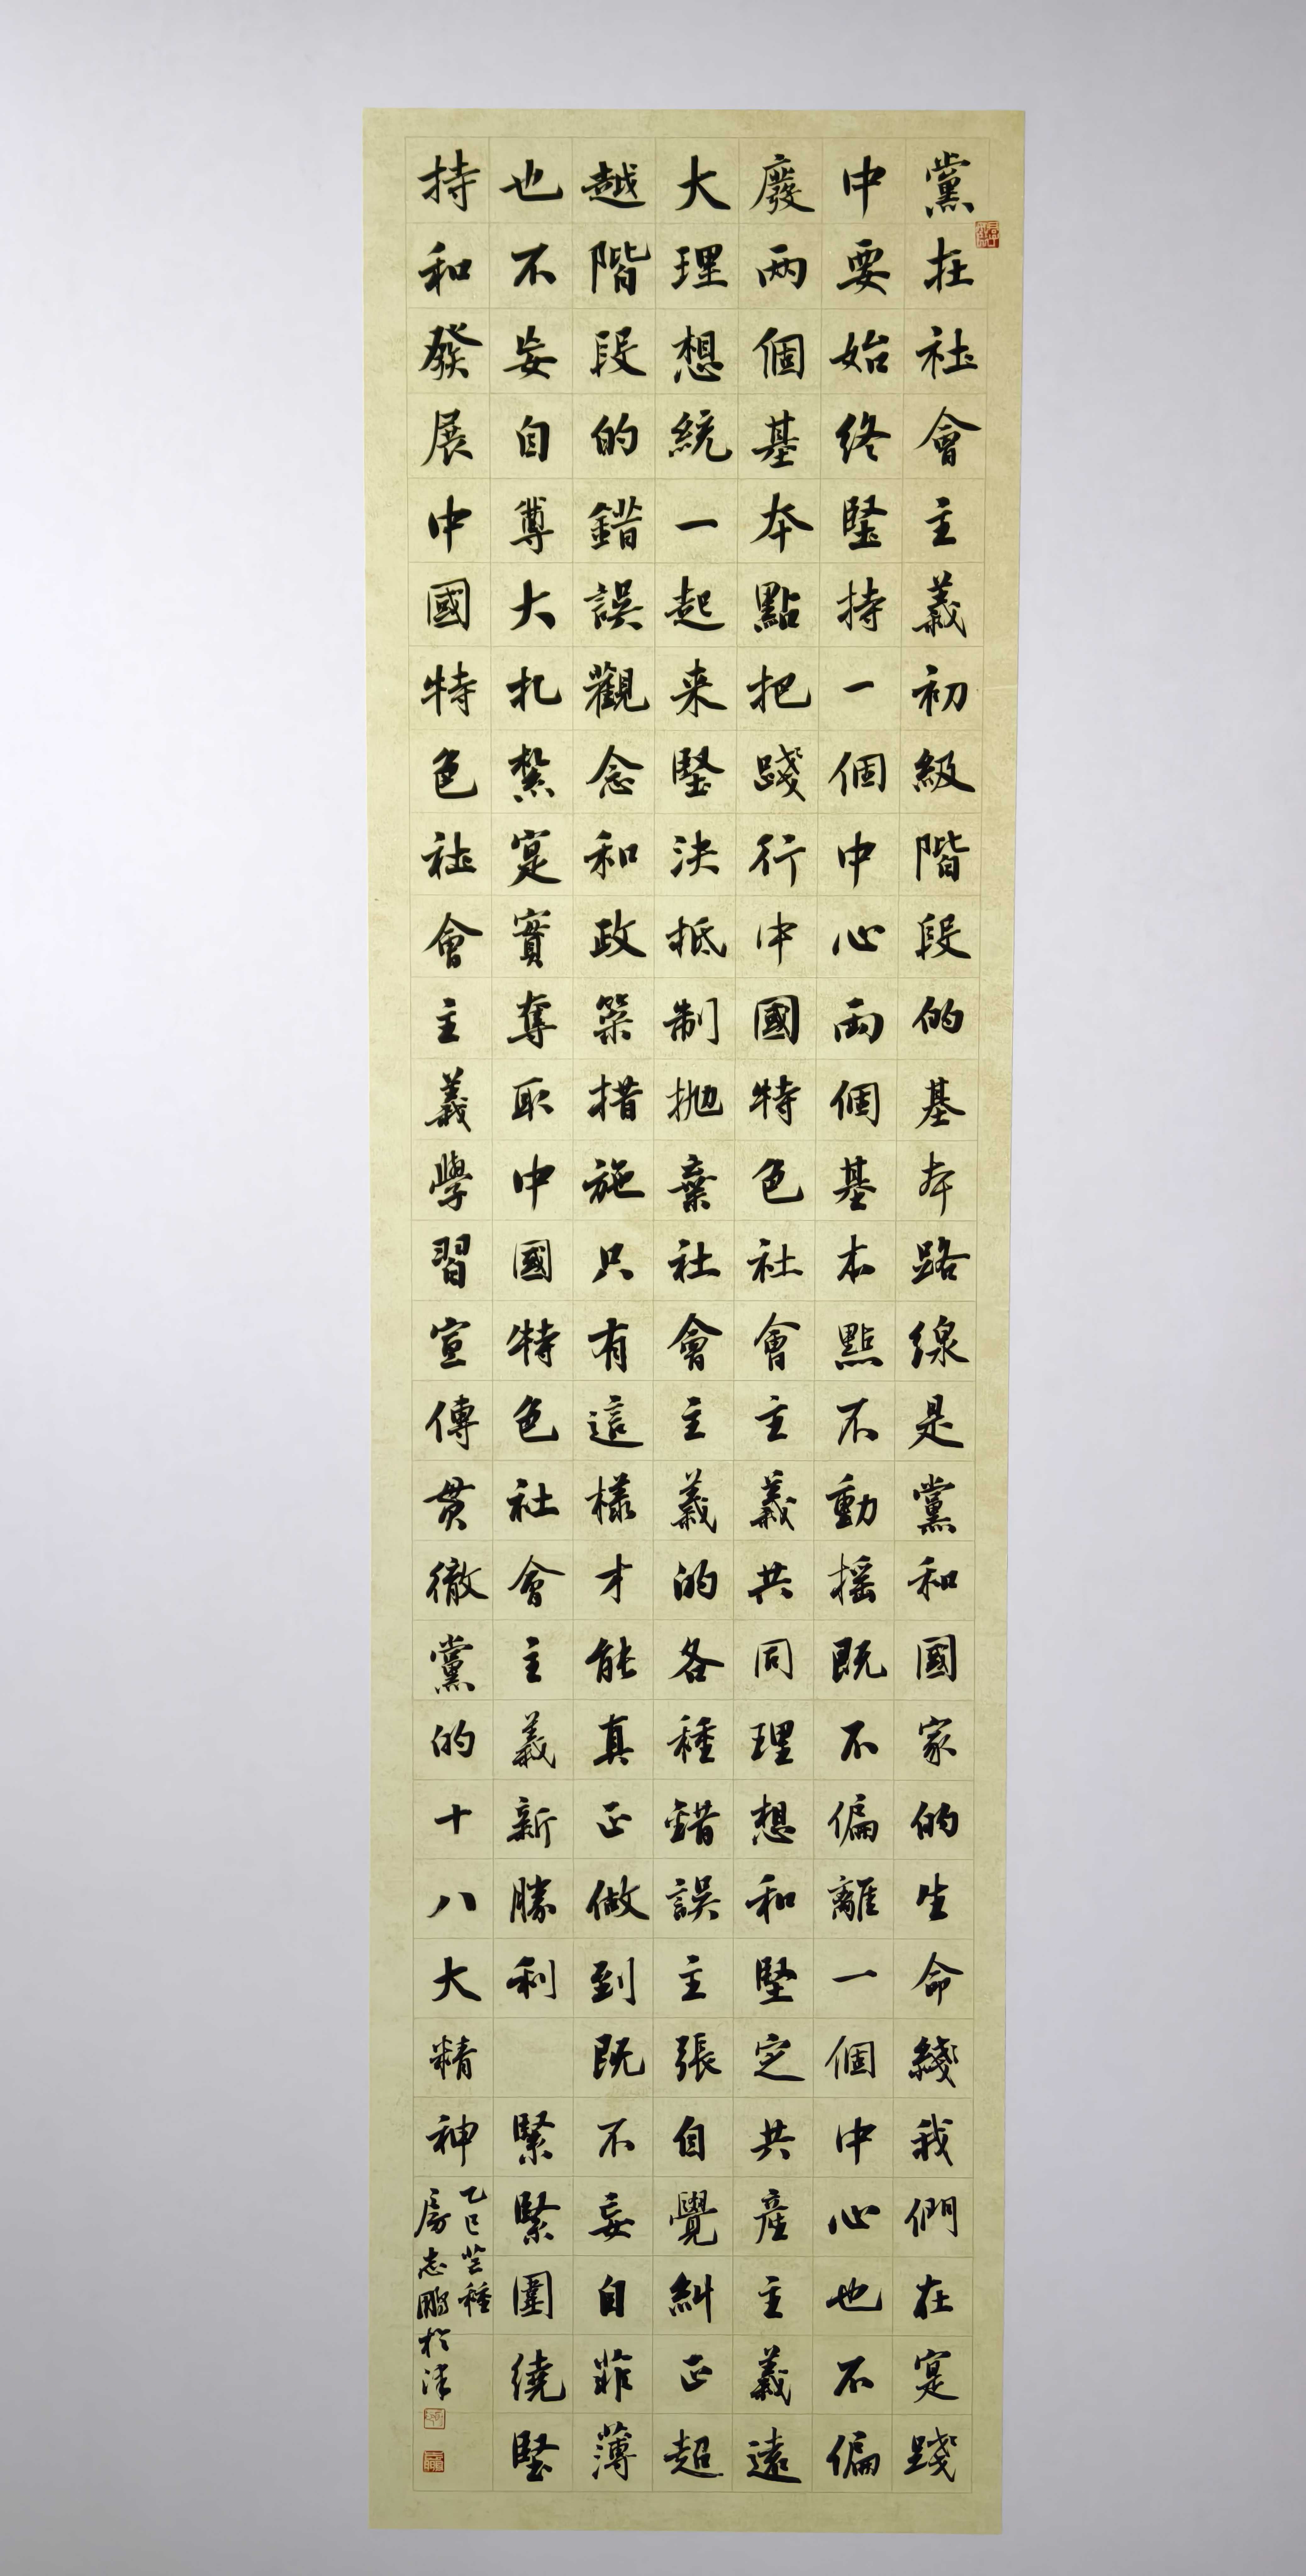 黨在社會主義初級階段的基本路線是黨和國家的生命綫我們在寔踐
中要始終堅持一個中心兩個基本點不動摇既不偏離一個中心也不偏
廢两個基本點把踐行中國特色社會主義共同理想和堅定共産主義遠
大理想統一起来堅決抵制抛棄社會主義的各種錯誤主張自覺糾正超
越階段的錯誤觀念和政策措施只有這樣才能真正做到既不妄自菲薄
也不妄自尊大扎紮寔實奪取中國特色社會主義新勝利 緊緊圍繞堅
持和發展中國特色社會主義學習宣傳贯徹黨的十八大精神
乙巳芒種
房志鵬於津